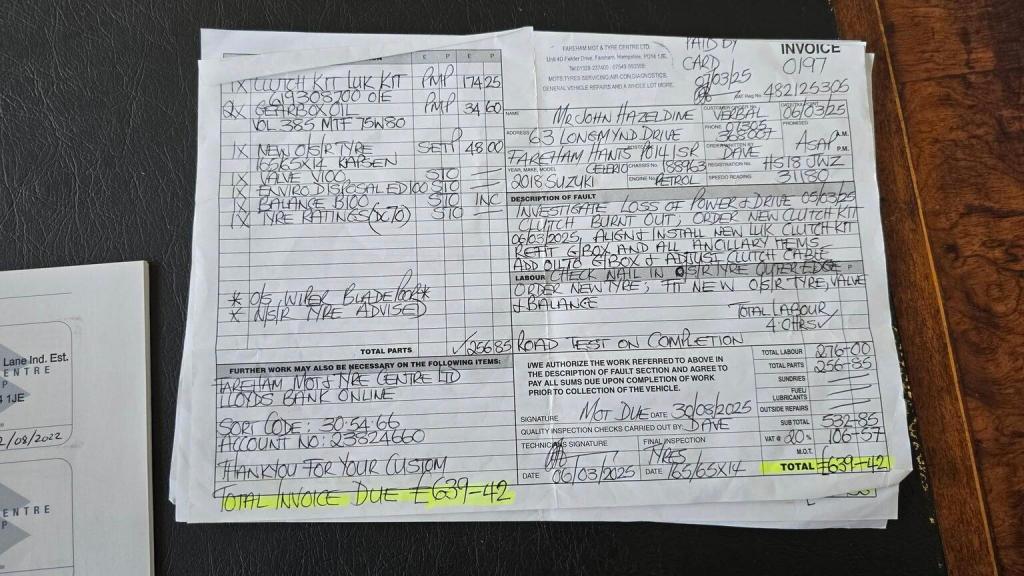 Lane Ind. Est.
ENTRE
P
4 1JE
2/08/2022
ENTRE
P
E P E P
1X CLUTCH KIT LUK KIT PMP 174 25
619303200 OIE
QX GEARBOX OIL PMP 34 60
VOL 385 MTF 75W80
1X NEW O/S/R TYRE SETP 48 00
165/65X14
1X VALVE V100 STO
1X ENVIRO DISPOSAL ED100 STO
1X BALANCE B100 STO INC
1X TYRE RATINGS STO
* O/S WIPER BLADE POOR *
* N/S/R TYRE ADVISED
TOTAL PARTS 256 85
FURTHER WORK MAY ALSO BE NECESSARY ON THE FOLLOWING ITEMS:
FAREHAM MOT & TYRE CENTRE LTD
LLOYDS BANK ONLINE
SORT CODE: 30-54-66
ACCOUNT NO: 23824660
THANKYOU FOR YOUR CUSTOM
TOTAL INVOICE DUE £639-42
FAREHAM MOT & TYRE CENTRE LTD.
Unit 4D Fielder Drive, Fareham, Hampshire, PO14 1JE.
MOTS.TYRES.SERVICING.AIR.CON.DIAGNOSTICS.
GENERAL VEHICLE REPAIRS AND A WHOLE LOT MORE.
PAID BY
CARD
07/03/25
INVOICE
0197
VAT Reg No. 482125305
NAME MR JOHN HAZELDINE
CUSTOMER ORDER No. VERBAL
06/03/25
ADDRESS 63 LONGMYND DRIVE
PHONE
PROMISED ASAP A.M. P.M.
FAREHAM HANTS PO14 1SR
DAVE
YEAR, MAKE, MODEL 2018 SUZUKI CELERIO
CHASSIS No. 188963
REGISTRATION No. HS18 JWZ
ENGINE No. PETROL
SPEEDO READING 31180
DESCRIPTION OF FAULT
INVESTIGATE LOSS OF POWER & DRIVE 05/03/25
CLUTCH BURNT OUT; ORDER NEW CLUTCH KIT
06/03/2025, ALIGN & INSTALL NEW LUK CLUTCH KIT
REFIT G/BOX AND ALL ANCILLARY ITEMS
ADD OIL TO G/BOX & ADJUST CLUTCH CABLE
LABOUR CHECK NAIL IN O/S/R TYRE OUTER EDGE
ORDER NEW TYRE; FIT NEW O/S/R TYRE, VALVE
& BALANCE
TOTAL LABOUR
4 HRS
ROAD TEST ON COMPLETION
I/WE AUTHORIZE THE WORK REFERRED TO ABOVE IN
THE DESCRIPTION OF FAULT SECTION AND AGREE TO
PAY ALL SUMS DUE UPON COMPLETION OF WORK
PRIOR TO COLLECTION OF THE VEHICLE.
SIGNATURE MOT DUE DATE 30/08/2025
QUALITY INSPECTION CHECKS CARRIED OUT BY: DAVE
TECHNICIANS SIGNATURE
FINAL INSPECTION
TYRES
DATE 06/03/2025 DATE 165/65X14
TOTAL LABOUR 276-00
TOTAL PARTS 256-85
SUNDRIES
FUEL/
LUBRICANTS
OUTSIDE REPAIRS
SUB TOTAL 532-85
VAT @ 20 % 106-57
M.O.T.
TOTAL £639-42